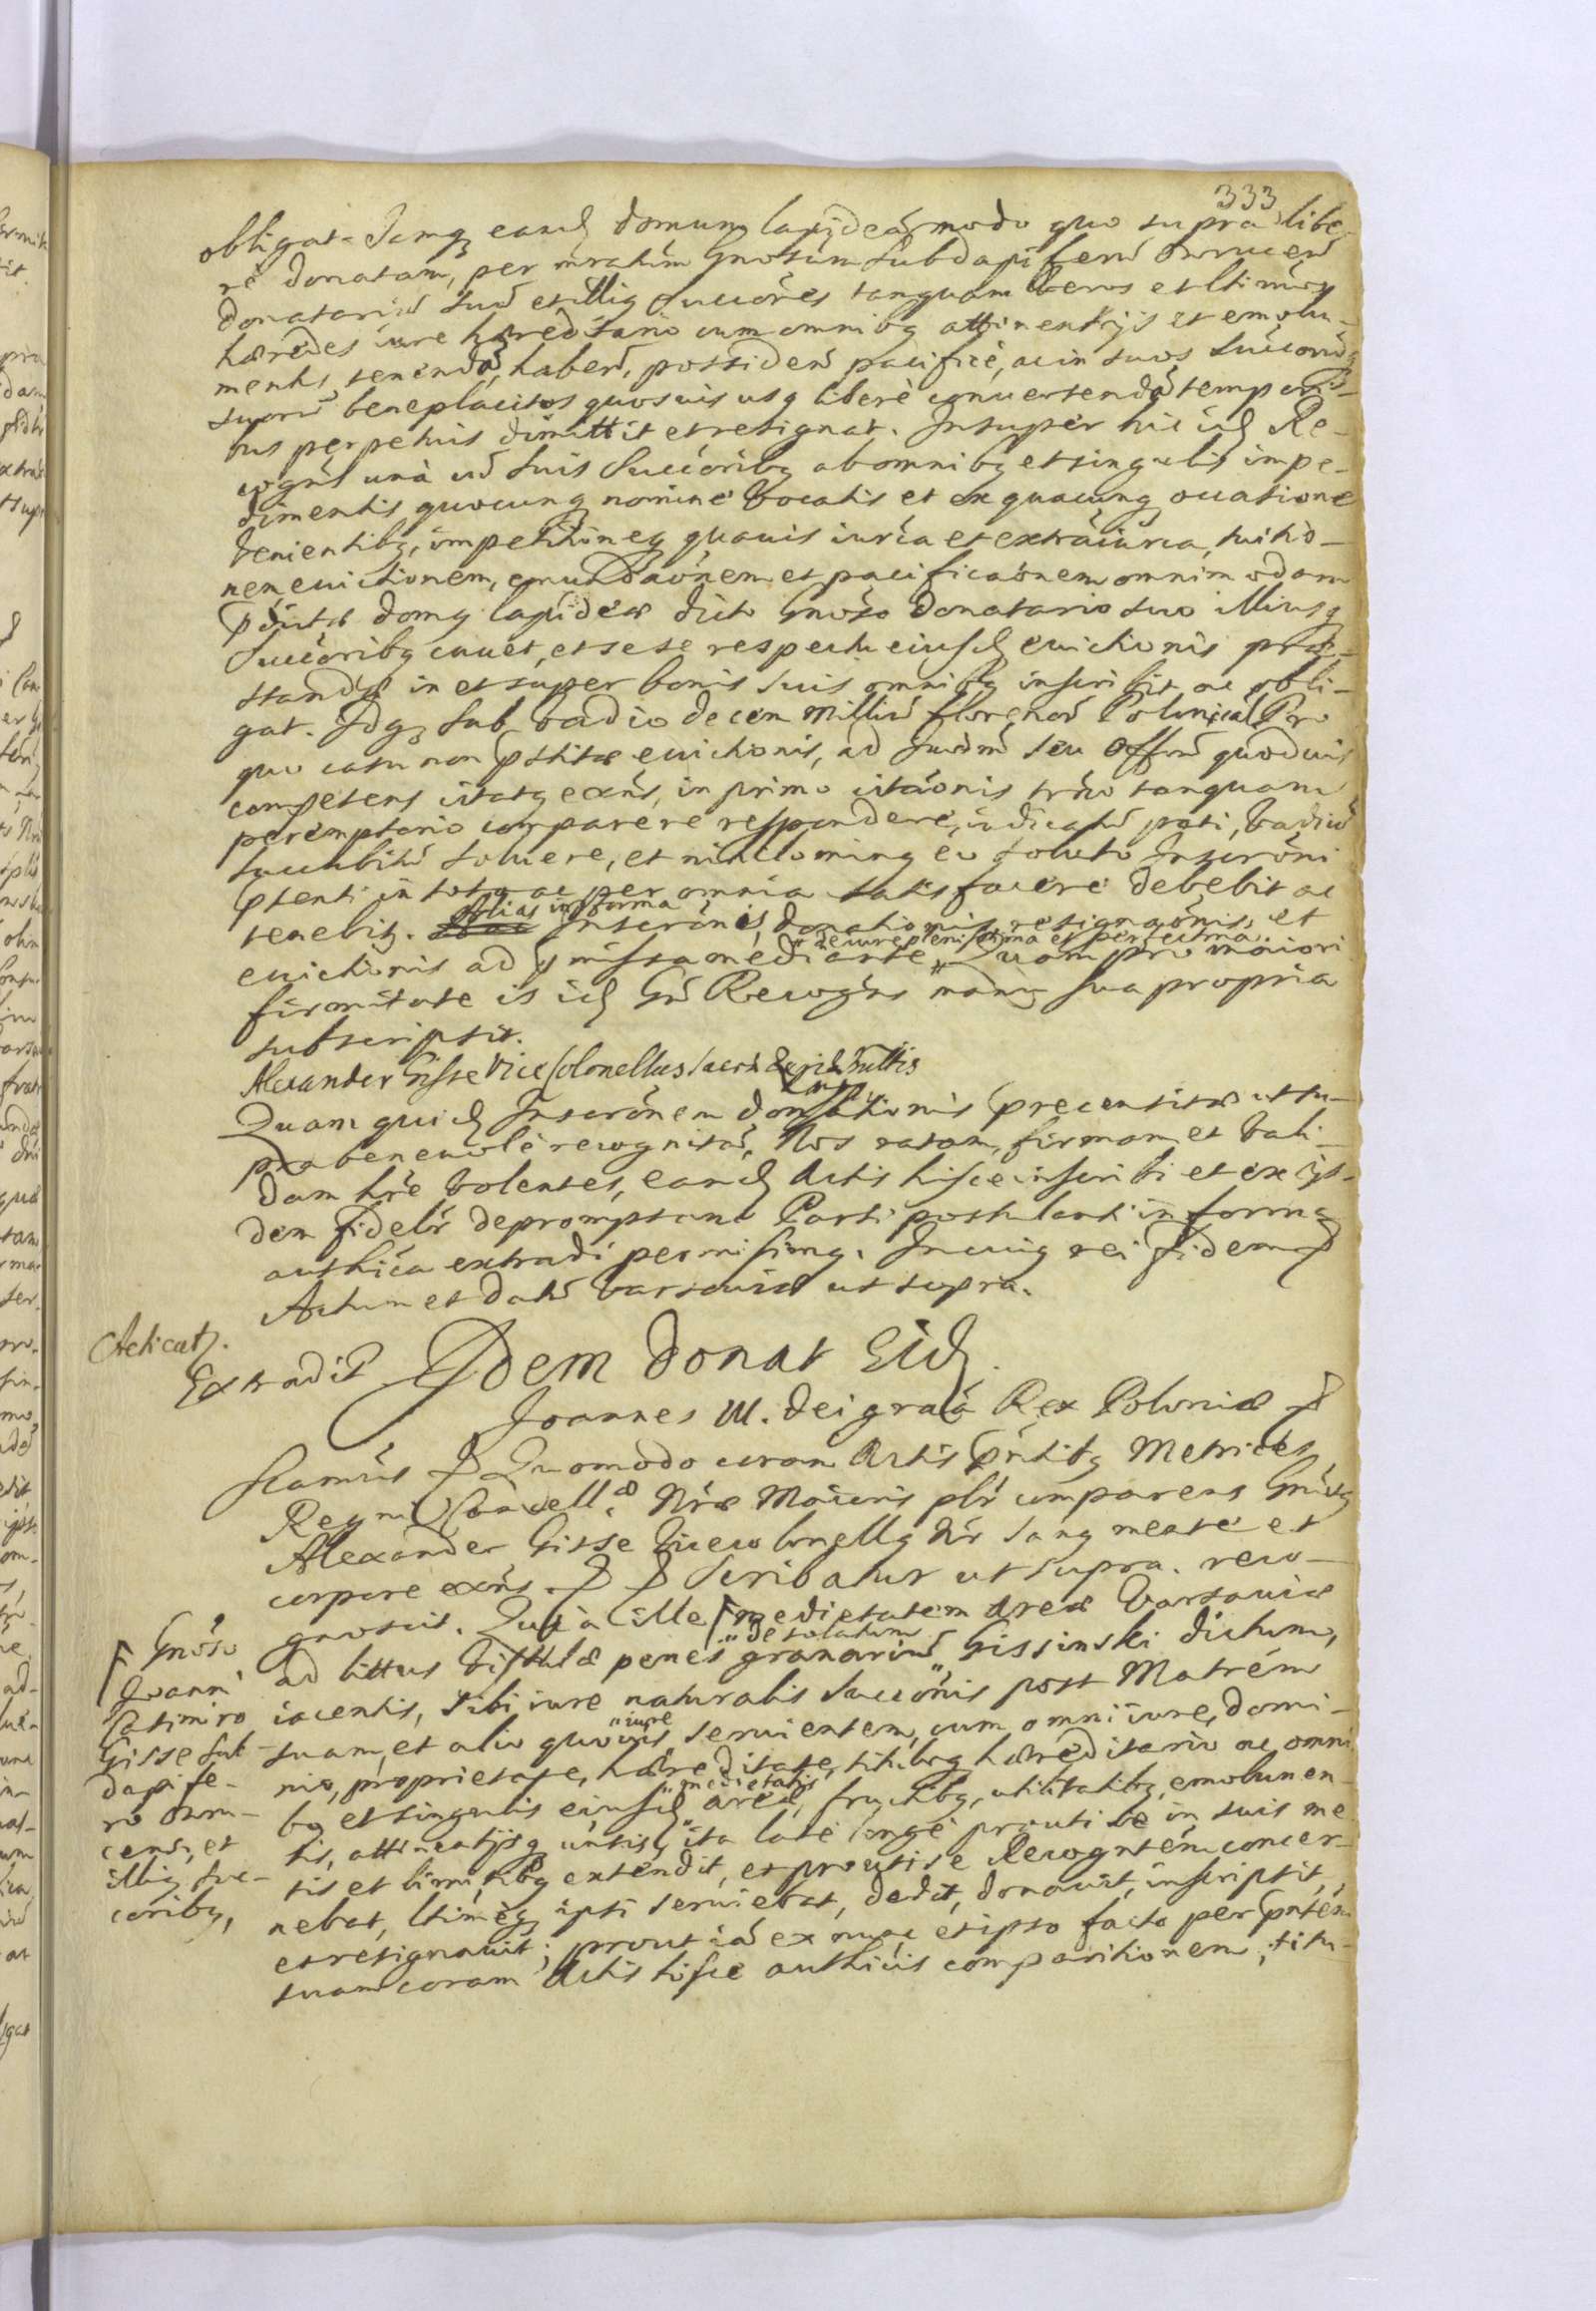 333
obligat. Jamq eand domum lapideā modo quo supra libe-
rè donatam, per mratim Gnosum Subdapiferū Owrucen
donatariū suū et illig Succores tanquam veros et ltimos
hæredes iure hæreditario cum omnibq attinentijs et emolu-
mentis, tenendā, habend, possidend pacificè, ac in suos Successorq
suorū beneplacitos quosvis usq liberè convertendā tempori-
bus perpetuis dimittit et resignat. Insuper hic id Re-
cognś unà cū suis Succoribq ab omnibq et singulis impe-
dimentis quocunq nomine vocatis et ex quacunq occasione
venientibq, impetitioneq quavis iurća et extraiurća, tuitio-
nem evictionem, emundaōnem et pacificaōnem omnimodam
pdictæ domq lapideæ dicto Gnoso Donatario suo illiusq
Succoribq cavet, et sese respectu eiusd evictionis præ-
standæ in et super bonis suis omnibq inscribit ac obli-
gat. Idq sub vadio decem Milliū florenoū Polonical Pro
quo casu non pstitæ evictionis, ad Judm seu Offm quodvis
competens citatq exns, in primo citaōnis trno tanquam
peremptorio comparere respondere, iudicatū pati, vadiū
succubitū soluere, et nihilominq eo soluto Inscrōni
pſenti in toto ac per omnia satisfacere debebit ac
tenebitq. Alias in forma Inscrōnis, donationis, resignaōnis, et
evictionis ad pmissa mediante „de iure plenissima et perfectma Quam pro maiori
firmitate is id Gn Recogns manu sua propria
subscripsit.
Alexander Gisse Vice Colonellus Sacræ Regiæ Mttis
Quam quid Inscrōnem donationis præcensitæ ut su-
pra benevolè recognitā, Nos ratam, firmam et vali-
dam hre volentes, eand Actis hisce inscribi et ex ijs-
dem fidelr depromptam Parti postulanti in forma
authća extradi permisimq. In cuiq rei fidem
Actum et datū Varsaviæ ut supra.
Acticatq.
Extradit Idem donat Eid.
Joannes III. Dei gratā Rex Poloniæ
Scamūs Quomodo coram Actis pntibq Metrices
Regni Cancell.æ Nræ Maioris plr comparens Gnosq
Alexander Gisse Vicecolonellq Nr sanq mente et
corpore exns. Scribatur ut supra. reco-
gnovit. Quia ille medietatem areæ Varsaviæ
ad littus Vistulæ penes granariū „desolatum Gissinski dictum,
iacentis, sibi iure naturalis Succōnis post Matrem
suam, et alio quovis „iure servientem, cum omni iure, domi-
nio, proprietate, hæreditate, tituloq hæreditario ac omni-
bq et singulis eiusd „medietatis areæ, fructibq, utilitatibq, emolumen-
tis, attinentijsq cunctis, ita latè longè prouti se in suis me-
tis et limitibq extendit, et prouti se Recogntem concer-
nebat, ltimeq ipsi serviebat, dedit, donavit, inscripsit,
et resignavit; prout iā ex nunc et ipso facto per pntem
suam coram Actis hisce authćis comparitionem, titu-
Gnoso
Joanni
Casimiro
Gisse Sub-
dapife-
ro Owru-
censi, et
illiq Suc-
coribq,